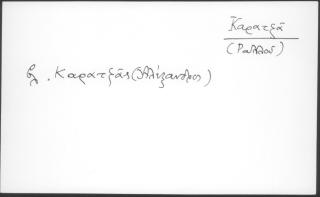 Καρατζᾶ
(Ραλλοῦ)
βλ. Καρατζᾶς (Ἀλέξανδρος)